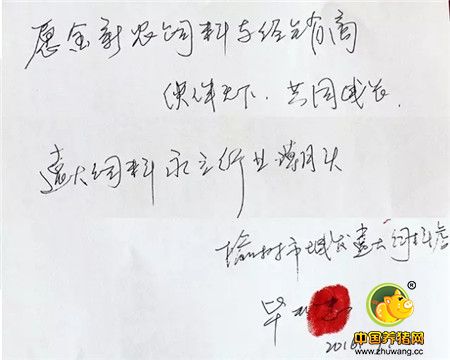 愿金新农饲料与经销商
伙伴天下，共同成长.
远大饲料永立行业潮头
榆树市城发远大饲料店
毕
2016
中国养猪网
www.zhuwang.cc